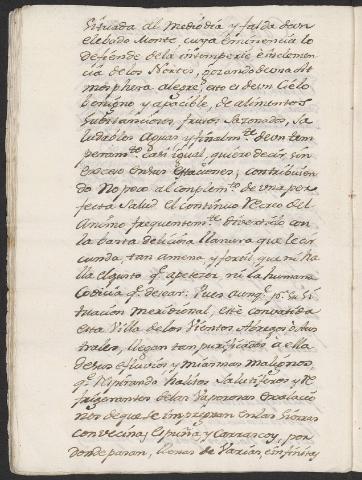 Situada al Medio dia y falda de un
elebado Monte cuya eminencia lo
defiende de la intemperie e inclemen
cia de los Nortes, gozando de una at
mosphera alegre, esto es de un Cielo
benigno y apacible, de alimentos
substanciosos, frutos sazonados, Sa
ludables Aguas y finalm.te de un tem
peram.to casi igual, quiero decir, sin
exceso en sus Estaciones; contribuien
do No poco al complem.to de una per
fecta Salud el continuo Recreo del
Animo frequentem.te divertido con
la basta deliciosa llanura que le cir
cunda, tan amena y fertil, que ni ha
lla el gusto q.e apetecer ni la humana
Codicia q.e desear. Pues aunq.e p.r su Si
tuacion Meridional, esté conbatida
esta Villa de los Vientos Abregos o Aus
trales, llegan tan purificados à ella
de sus efluvios y miasmas malignos,
q.e respirando halitos Salutiferos y Re
frigerantes de las Vaporosas Exalacio
nes de que se impregnan en las Sierras
convecinas, Espuña, y Carrascoy, por
donde pasan, llenas de Varias, e infinitas